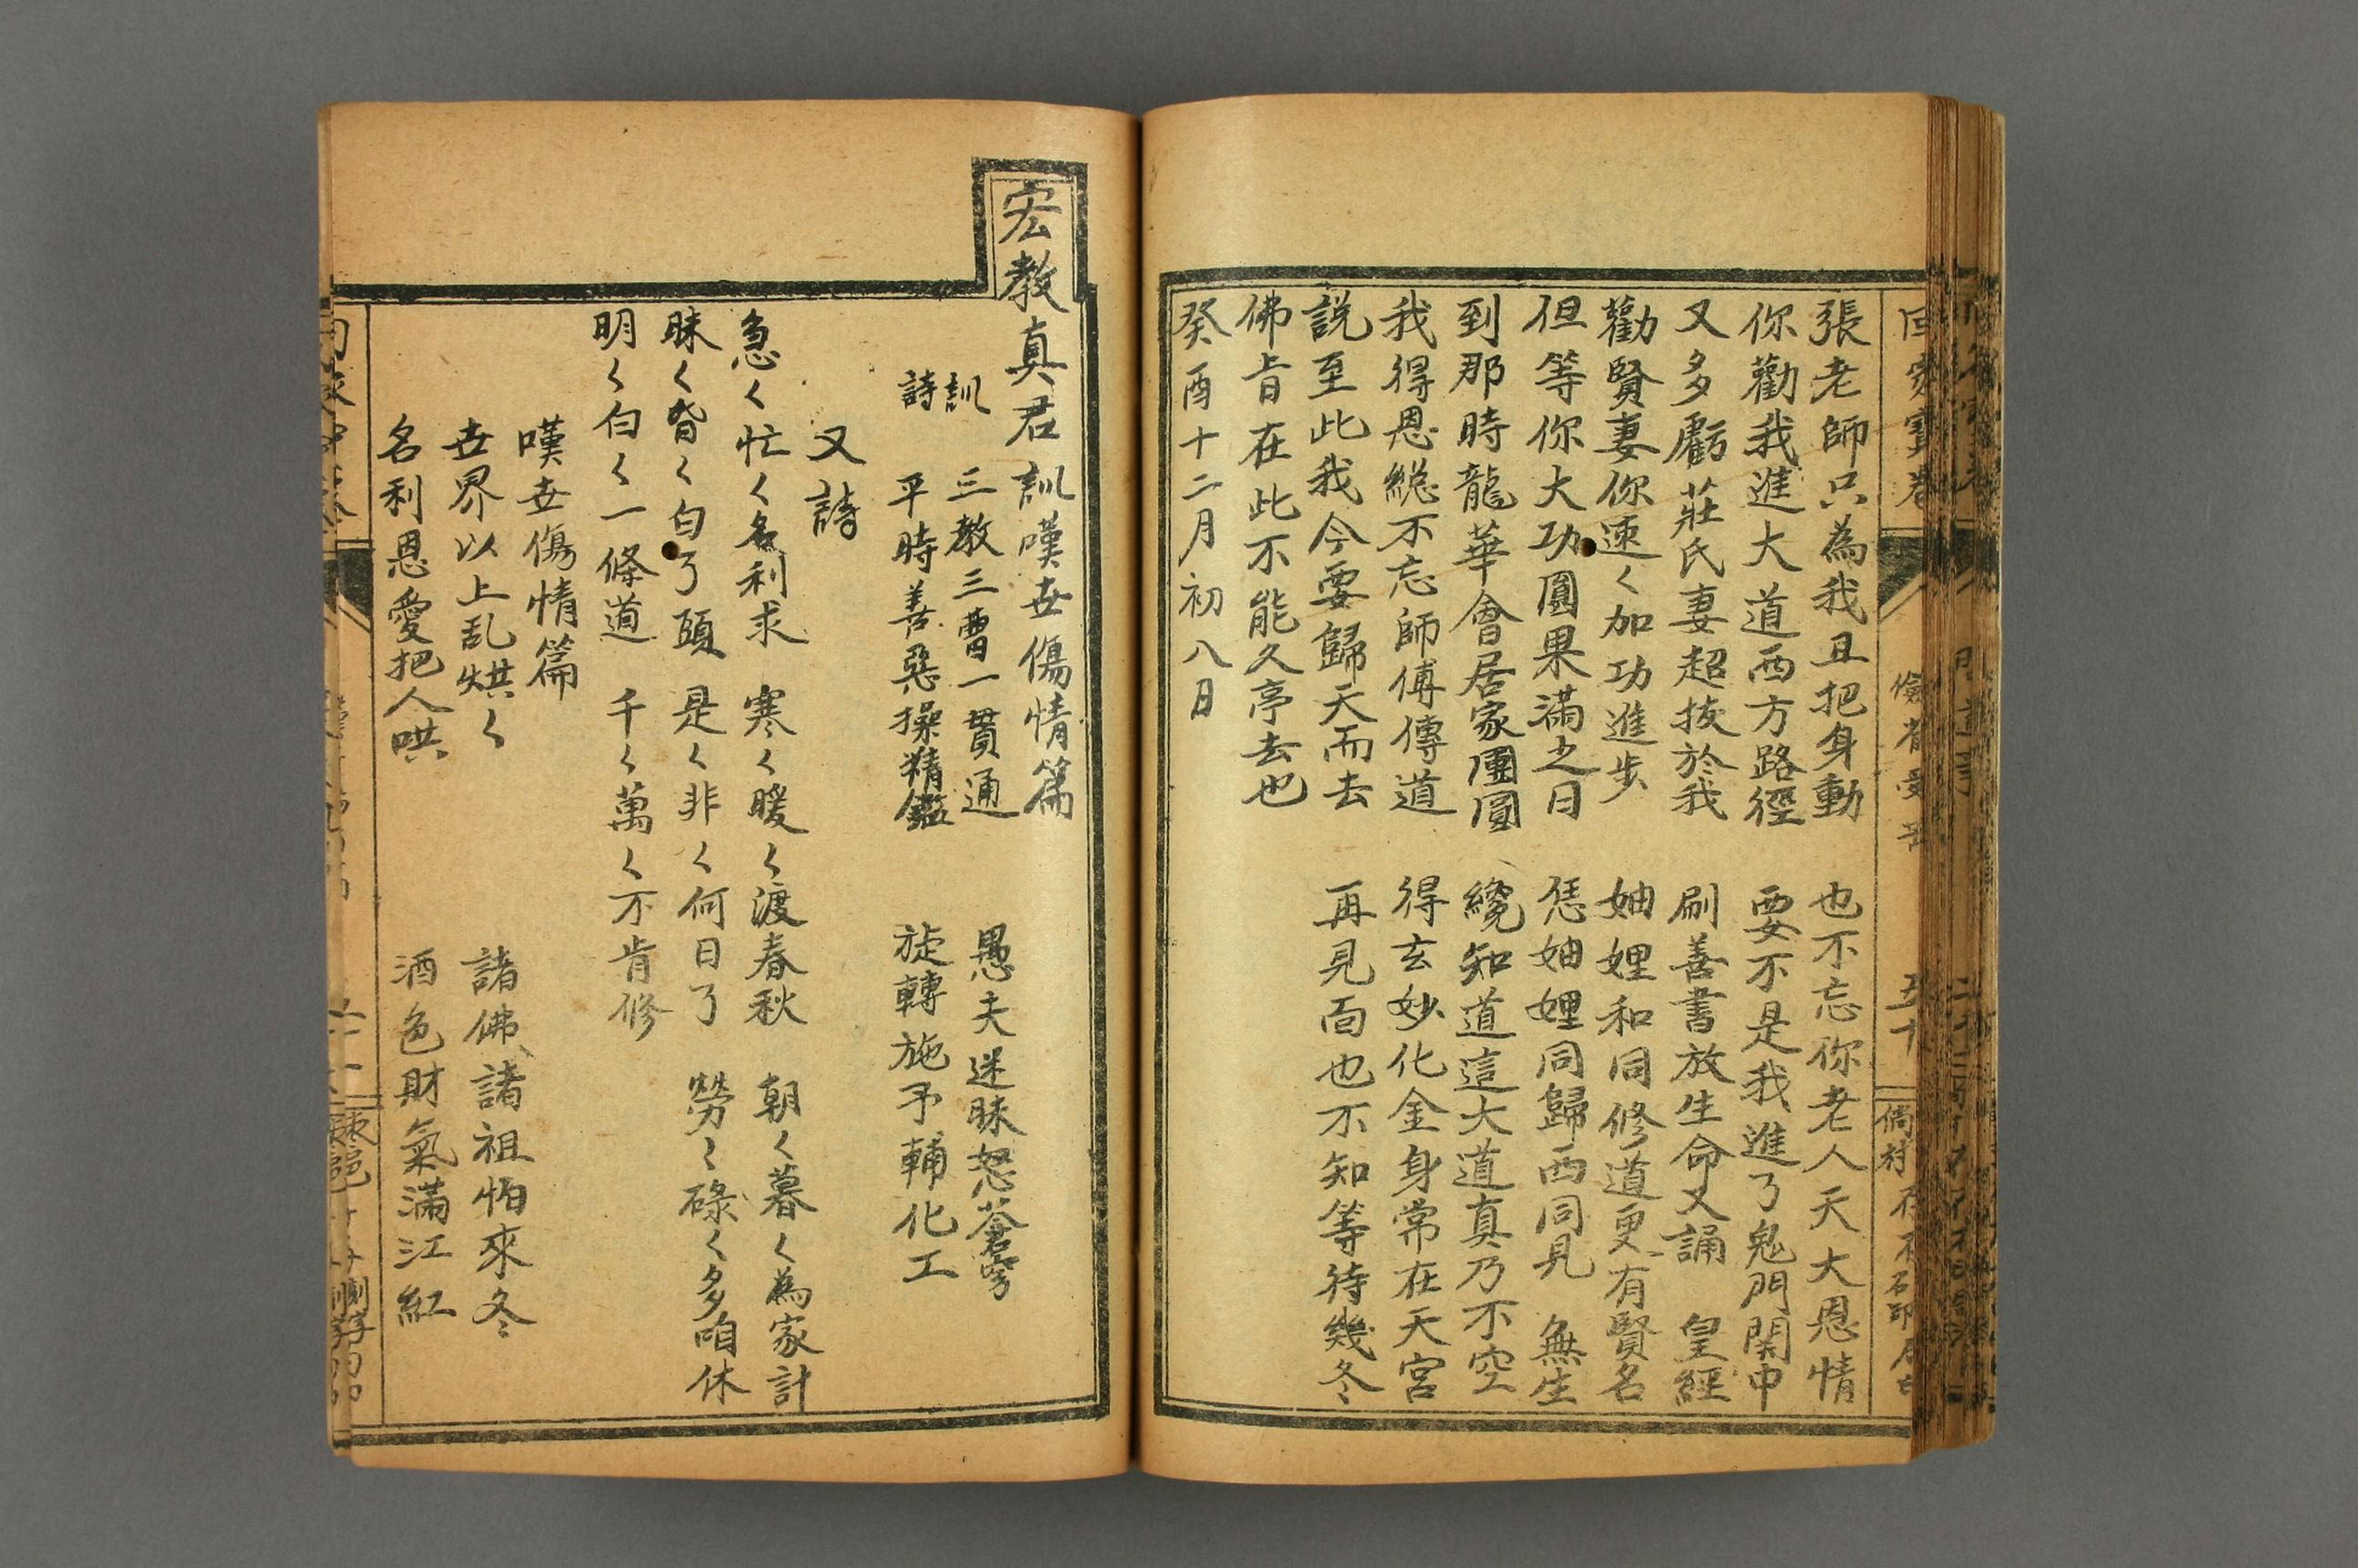 張老師只為我且把身動　也不忘你老人天大恩情
你勸我進大道西方路徑　要不是我進了鬼門関中
又多虧莊氏妻超拔於我　刷善書放生命又誦　皇經
勸賢妻你速〱加功進步　妯娌和同修道更有賢名
但等你大功圓果滿之日　恁妯娌同歸西同見　無生
到那時龍華會居家團圓　纔知道這大道真乃不空
我得恩総不忘師傅傳道　得玄妙化金身常在天宮
説至此我今要歸天而去　再見面也不知等待幾冬
佛旨在此不能久亭去也
癸酉十二月初八日
宏教真君訓嘆世傷情篇
訓　三教三曹一貫通　愚夫迷昧怒蒼穹
詩　平時善惡操精鑑　旋轉施予輔化工
又詩
急〱忙〱名利求　寒〱暖〱渡春秋　朝〱暮〱為家計
昧〱昏〱白了頭　是〱非〱何日了　勞〱碌〱多咱休
明〱白〱一條道　千〱萬〱不肯修
嘆世傷情篇
世界以上乱烘〱　諸佛諸祖怕來冬
名利恩愛把人哄　酒色財氣滿江紅